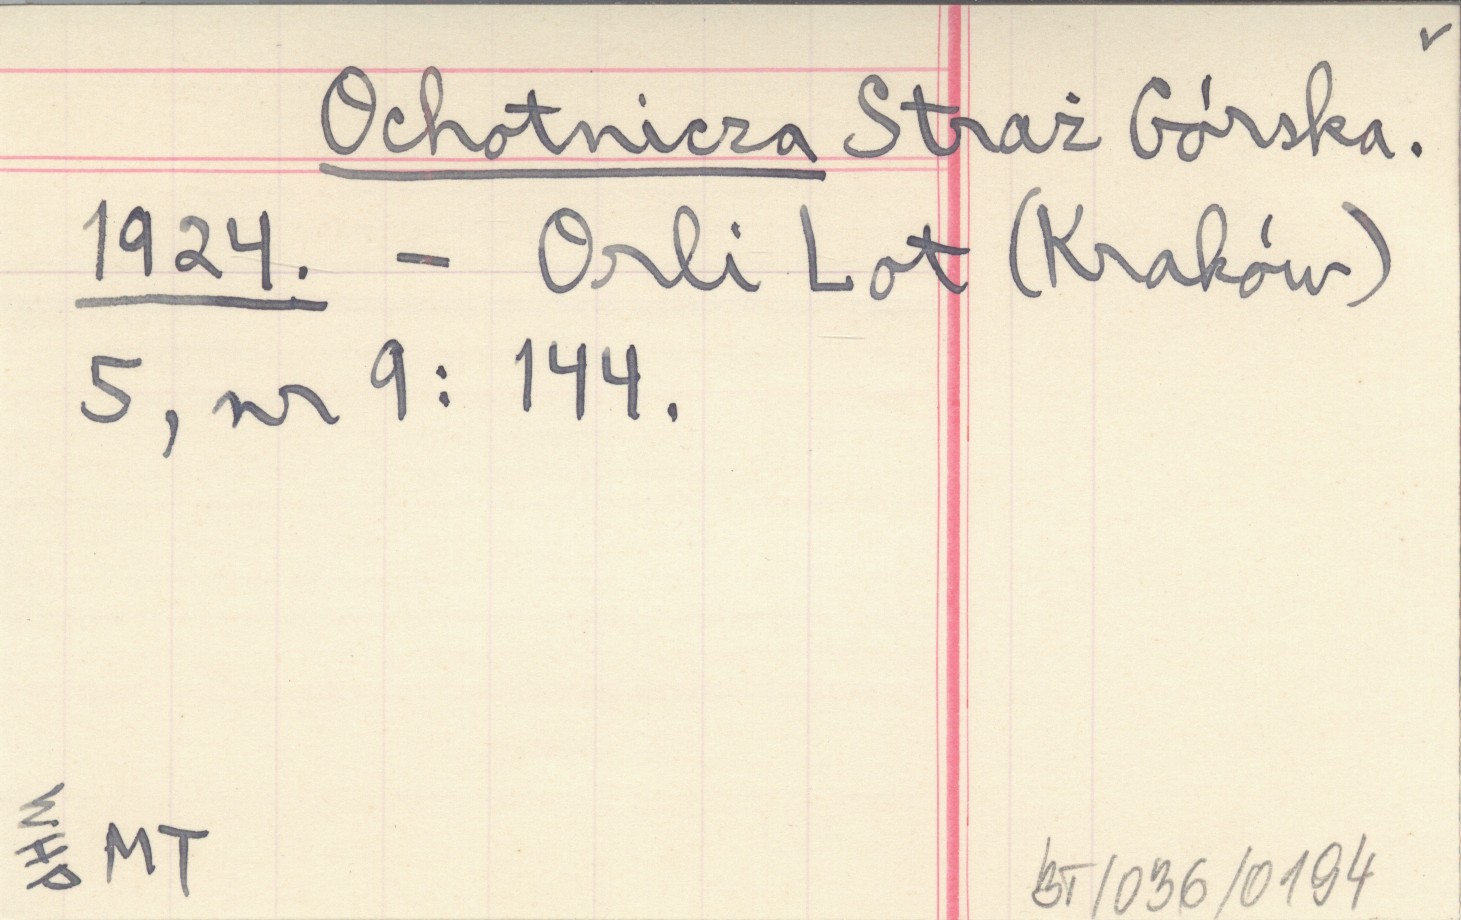 Ochotnicza Straż Górska.
1924. – Orli Lot (Kraków)
5, nr 9: 144.
WHP
MT
BT/036/0194